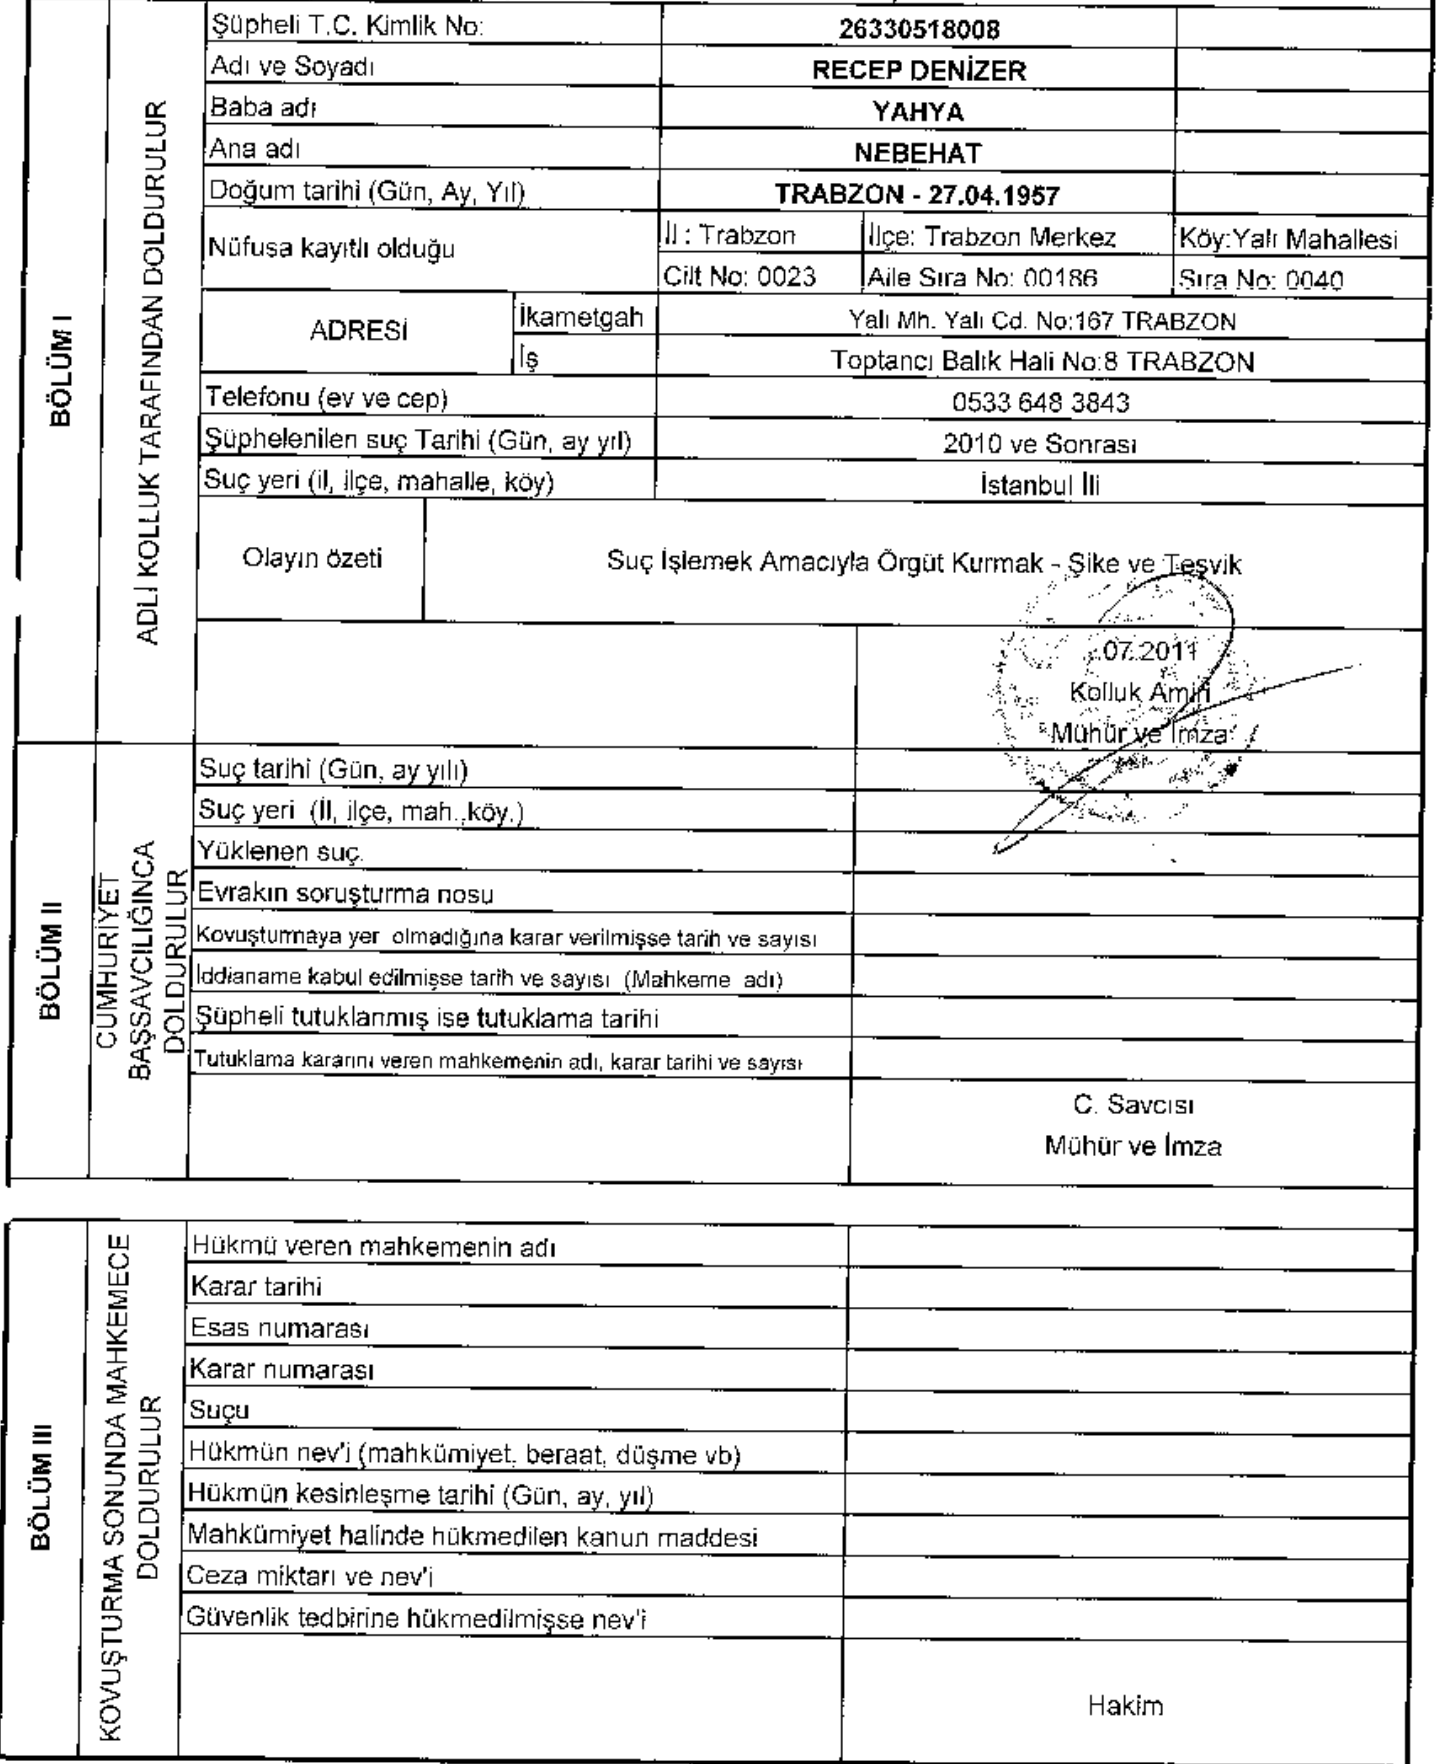 Şüpheli T.C. Kimlik No: 26330518008
Adı ve Soyadı RECEP DENİZER
Baba adı YAHYA
Ana adı NEBEHAT
Doğum tarihi (Gün, Ay, Yıl) TRABZON - 27.04.1957
Nüfusa kayıtlı olduğu
İl : Trabzon İlçe: Trabzon Merkez Köy:Yalı Mahallesi
Cilt No: 0023 Aile Sıra No: 00186 Sıra No: 0040
ADRESİ
İkametgah Yalı Mh. Yalı Cd. No:167 TRABZON
İş Toptancı Balık Hali No:8 TRABZON
Telefonu (ev ve cep) 0533 648 3843
Şüphelenilen suç Tarihi (Gün, ay yıl) 2010 ve Sonrası
Suç yeri (il, ilçe, mahalle, köy) İstanbul İli
Olayın özeti Suç İşlemek Amacıyla Örgüt Kurmak - Şike ve Teşvik
.07.2011
Kolluk Amiri
Mühür ve İmza
BÖLÜM I
ADLİ KOLLUK TARAFINDAN DOLDURULUR
Suç tarihi (Gün, ay yılı)
Suç yeri (İl, ilçe, mah.,köy.)
Yüklenen suç.
Evrakın soruşturma nosu
Kovuşturmaya yer olmadığına karar verilmişse tarih ve sayısı
İddianame kabul edilmişse tarih ve sayısı (Mahkeme adı)
Şüpheli tutuklanmış ise tutuklama tarihi
Tutuklama kararını veren mahkemenin adı, karar tarihi ve sayısı
C. Savcısı
Mühür ve İmza
BÖLÜM II
CUMHURİYET
BAŞSAVCILIĞINCA
DOLDURULUR
Hükmü veren mahkemenin adı
Karar tarihi
Esas numarası
Karar numarası
Suçu
Hükmün nev'i (mahkümiyet, beraat, düşme vb)
Hükmün kesinleşme tarihi (Gün, ay, yıl)
Mahkümiyet halinde hükmedilen kanun maddesi
Ceza miktarı ve nev'i
Güvenlik tedbirine hükmedilmişse nev'i
Hakim
BÖLÜM III
KOVUŞTURMA SONUNDA MAHKEMECE
DOLDURULUR